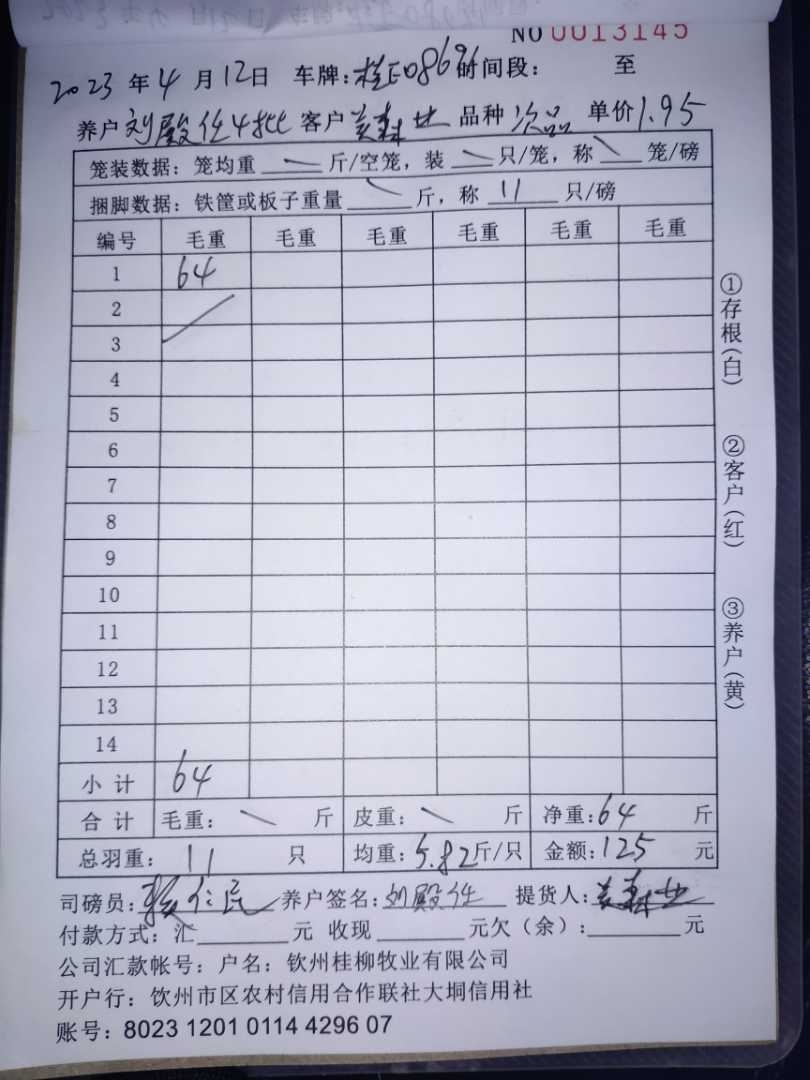 NO 0013145
2023 年 4 月 12 日 车牌：桂E08696 时间段： 至
养户 刘殿任4批 客户 美森世 品种 次品 单价 1.95
笼装数据：笼均重 斤/空笼，装 只/笼，称 笼/磅
捆脚数据：铁筐或板子重量 斤，称 11 只/磅
编号 毛重 毛重 毛重 毛重 毛重 毛重
1 64
2
3
4
5
6
7
8
9
10
11
12
13
14
小计 64
合计 毛重： 斤 皮重： 斤 净重：64 斤
总羽重： 11 只 均重：5.82 斤/只 金额：125 元
司磅员： 养户签名：刘殿任 提货人：美森世
付款方式：汇 元 收现 元欠（余）： 元
公司汇款帐号：户名：钦州桂柳牧业有限公司
开户行：饮州市区农村信用合作联社大垌信用社
账号：8023 1201 0114 4296 07
①存根（白）
②客户（红）
③养户（黄）